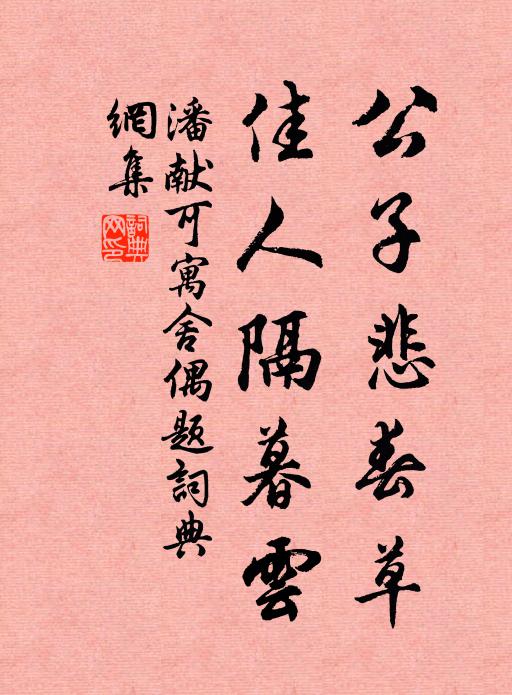 公子悲春草
佳人隔暮雲
潘献可寓舍偶題詞典
網集
詞典
网印